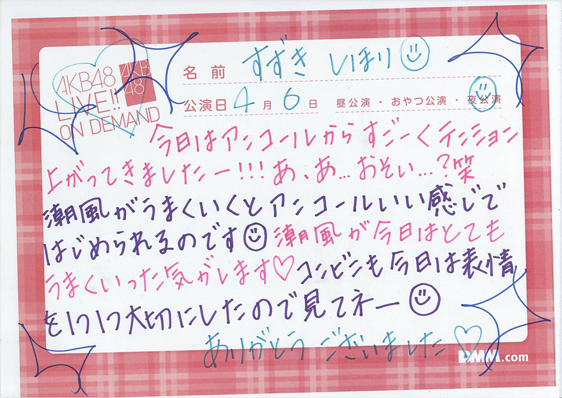 AKB48
LIVE!!
ON DEMAND
AKB
48
名前 すずき しほり
公演日 4月6日 昼公演・おやつ公演・夜公演
今日はアンコールからすごーくテンション
上がってきましたー!!!あ、あ...おそい...?笑
潮風がうまくいくとアンコールいい感じで
はじめられるのです 潮風が今日はとても
うまくいった気がします♡ コンビニも今日は表情
を1つ1つ大切にしたので見てネー
ありがとうございました♡
DMM.com